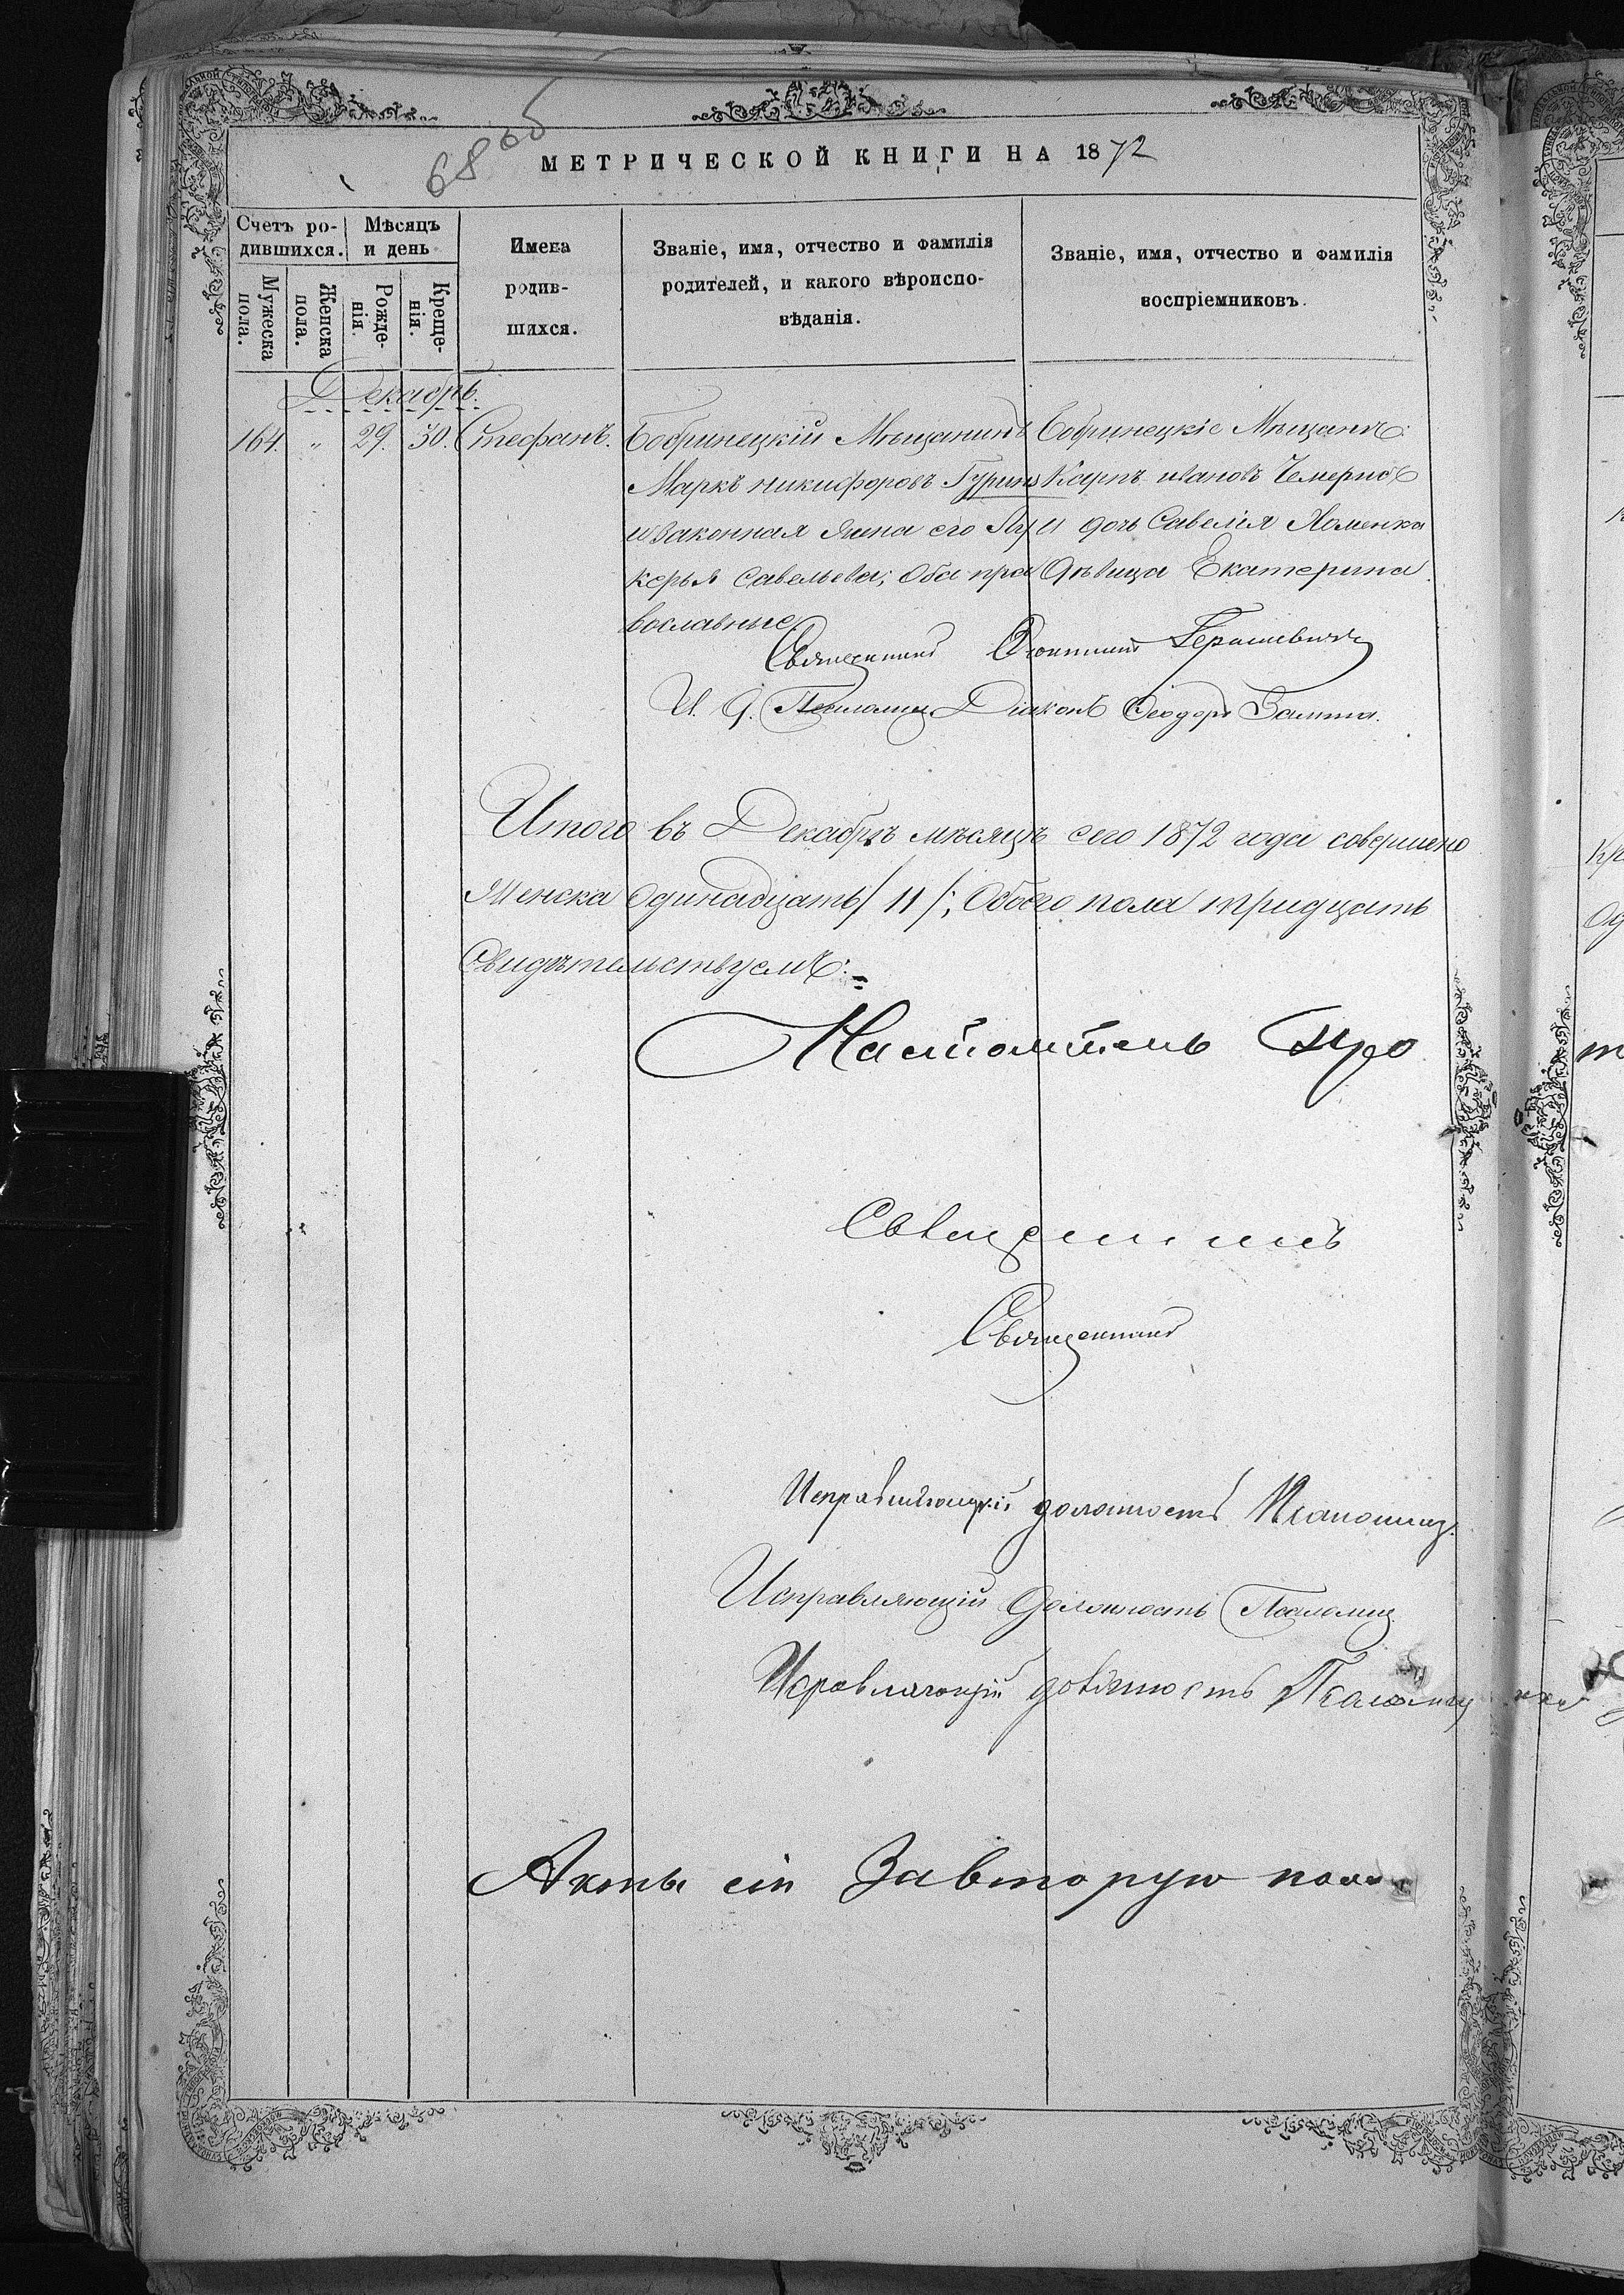 68 об
МЕТРИЧЕСКОЙ КНИГИ НА 1872
Счетъ родившихся.
Мужеска пола.
Женска пола.
Мѣсяцъ и день
Рожденія.
Крещенія.
Имена родившихся.
Званіе, имя, отчество и фамилія
родителей, и какого вѣроиспо-
вѣданія.
Званіе, имя, отчество и фамилія
воспріемниковъ.
Декабрь.
164. " 29. 30. Стефанъ.
Бобринецкій Мѣщанинъ
Маркъ никифоровъ Гуринъ
и законная жена его Лу
керья Савельева; Оба пра
вославные
Бобринецкіе Мѣщане:
Карпъ ивановъ Чемерисъ
и дочь Савелія Хоменка
дѣвица Екатерина.
Священникъ Герасимовичъ
И. д. Псаломщ. Діаконъ Феодоръ
Итого въ Декабрѣ мѣсяцѣ сего 1872 года совершено
Женска Одинадцать /11/; Обоего пола тридцать
Свидѣтельствуемъ:
Настоятель Про
Священникъ
Священникъ
Исправляющій должность Псаломщ.
Исправляющій Должность Псаломщ.
Исправляющій должность Псаломщ
Акты сіи За вторую пол